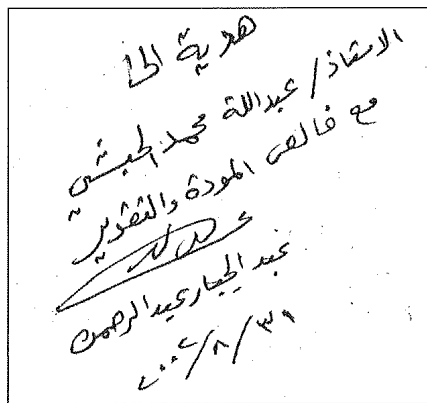 هدية الى
الاستاذ / عبدالله محمد الحبشي
مع خالص المودة والتقدير
عبد الجبار عبدالرحمن
٢٠٠٢/٨/٣١